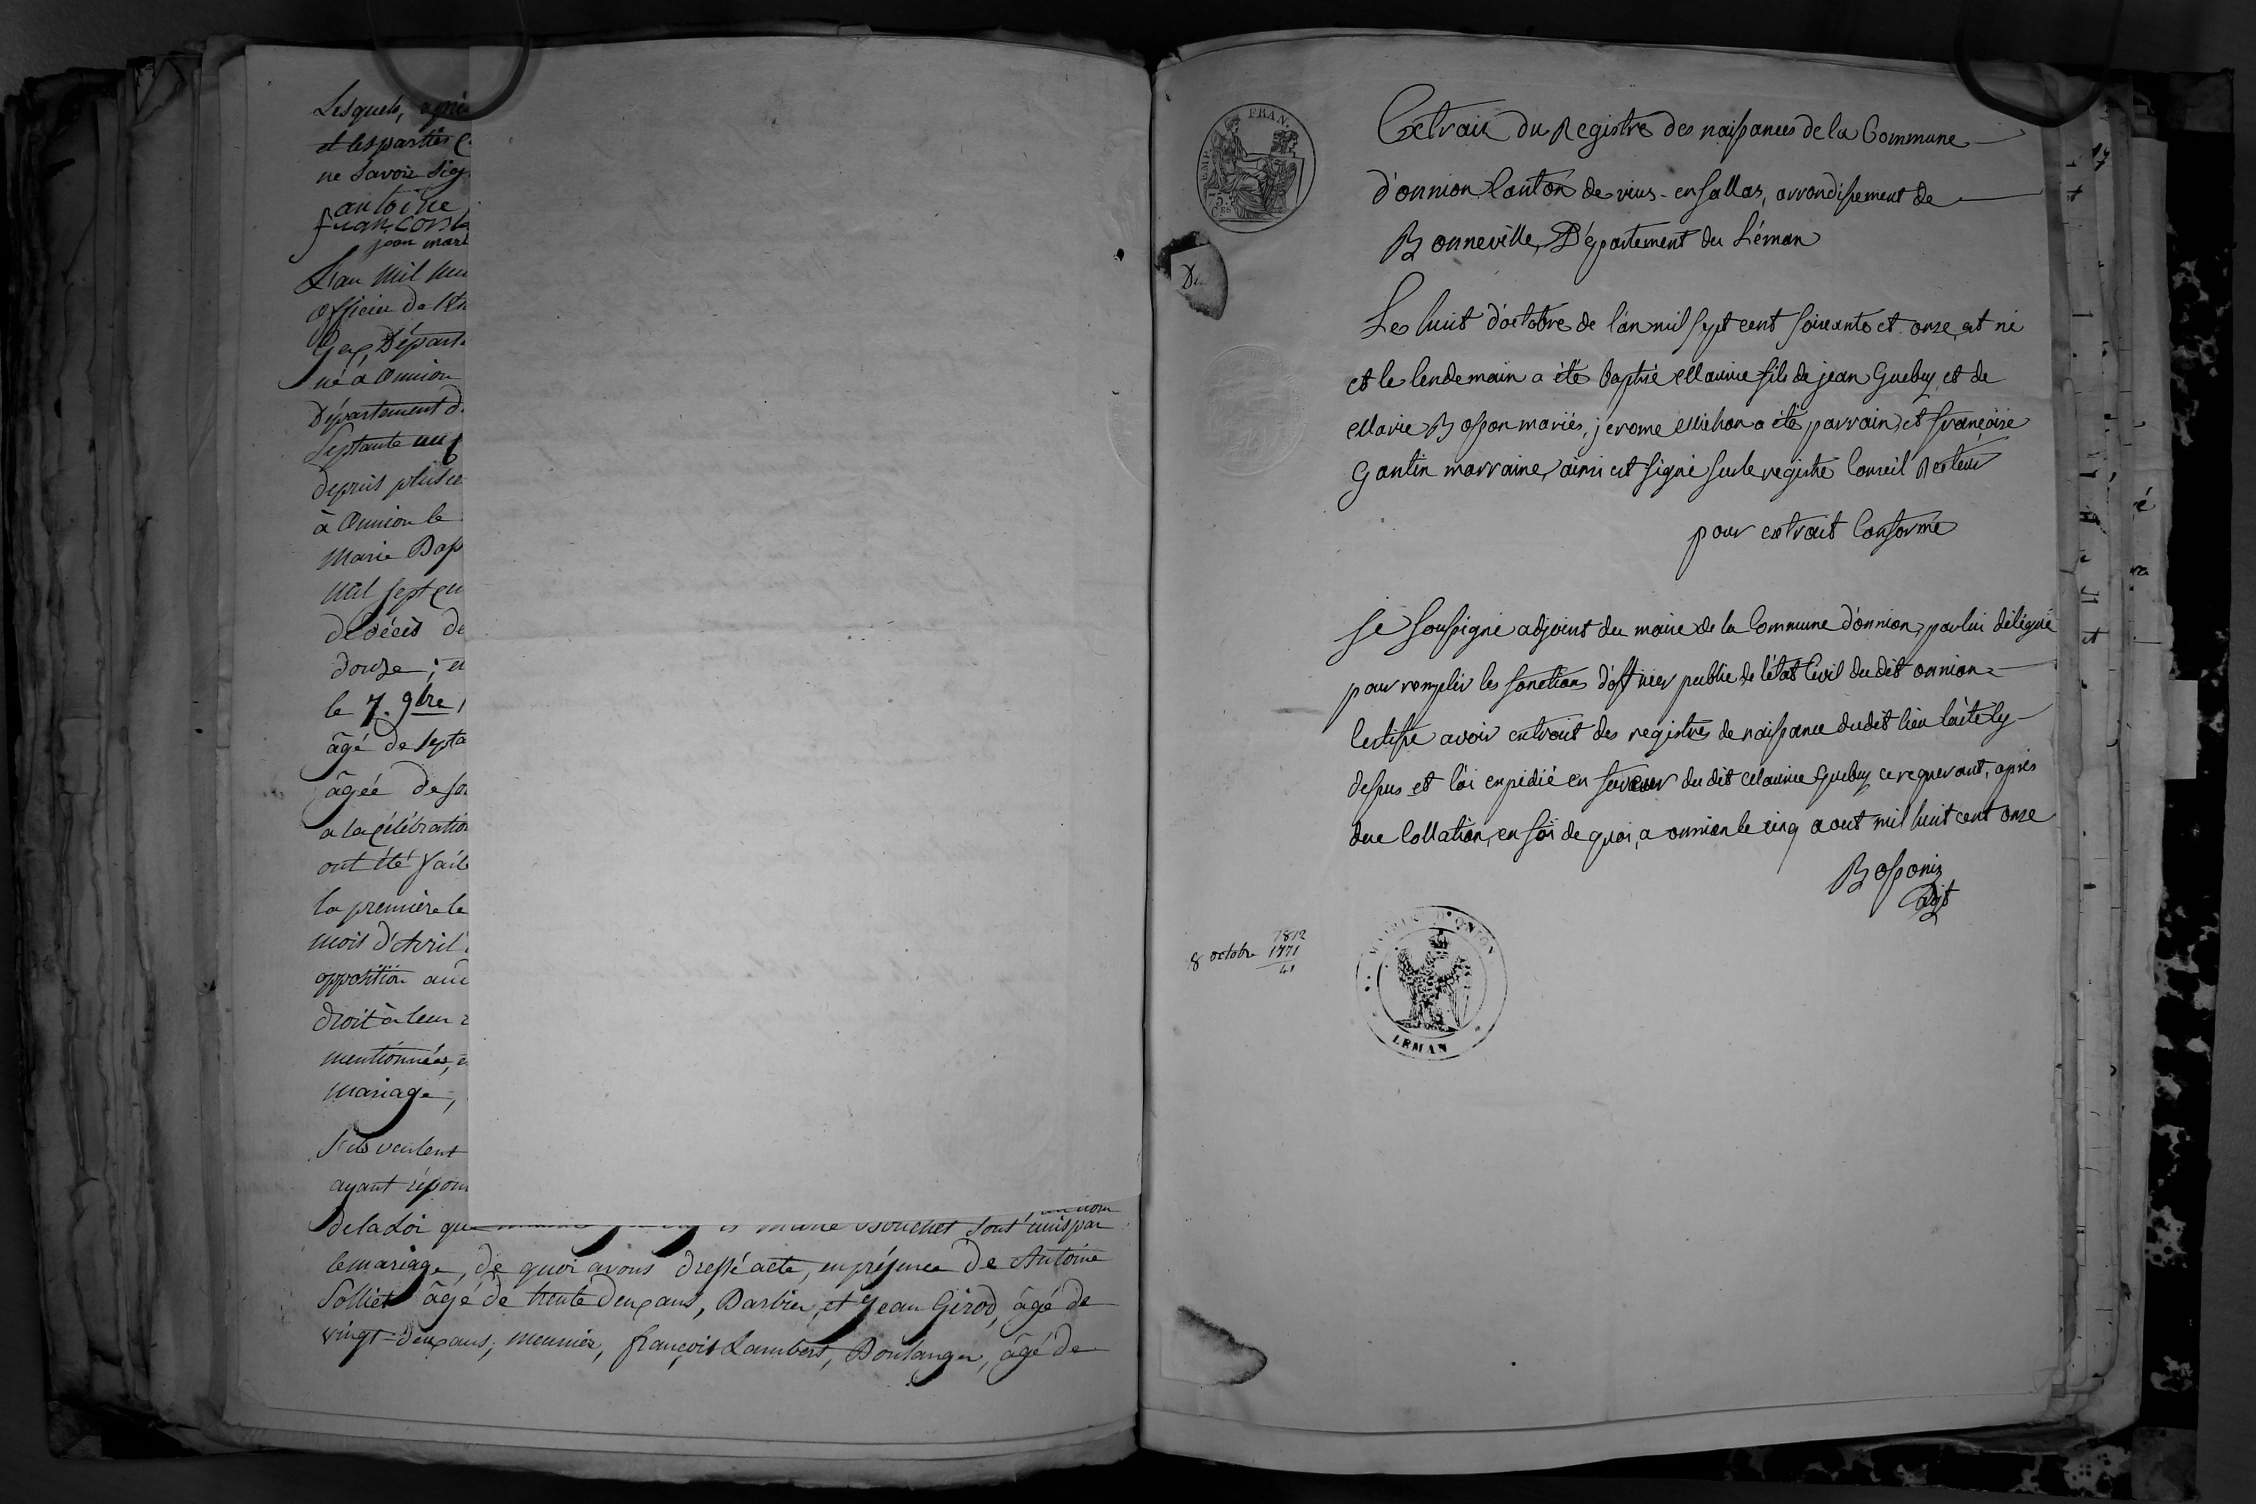 Lesquels, après
et les parties C
ne savoir sig
antoine
jean const
jean mari
L'an mil hui
officier de l'ét
Gex, Départ
né à Onnion
Département d
Septante un
depuis plusie
à Onnion le
Marie Boss
mil sept cen
de décès de
douze; et
le 7. 9bre 1
âgé de septa
âgée de soi
a la célébration
ont été fait
la première le
mois d'Avril
opposition au d
droit à leur r
mentionnées, e
mariage,
s'ils veulent
ayant répon
au nom
de la Loi que et marie Bouchet sont unis par
le mariage, de quoi avons dressé acte, en présence de Antoine
Solliet âgé de trente deux ans, Barbier, et Jean Girod, âgé de
vingt-deux ans, meunier, françois Lambert, Boulanger, âgé de
EMP. FRAN.
75
Cs
Extrait du Registre des naissances de la Commune
d'onnion Canton de vius-en sallas, arrondissement de
Bonneville, Département du Léman
Le huit d'octobre de l'an mil sept cent soixante et onze, est né
et le lendemain a été baptisé Maurice fils de jean Guebey et de
Marie Bosson mariés, jerome Michon a été parrain, et françoise
Gantin marraine, ainsi est signé sur le registre Conseil Recteur
pour extrait Conforme
Je soussigné adjoint du maire de la Commune d'onnion, par lui délégué
pour remplir les fonctions d'officier public de l'état Civil du dit onnion
Certifie avoir extrait des registres de naissance du dit lieu l'acte cy
dessus et l'ai expédié en faveur du dit Maurice Guebey ce requerant, après
due Collation, en foi de quoi, a onnion le cinq aout mil huit cent onze
Bossoniz
adjt
1812
8 octobre 1771
41
MAIRIE D'ONION
LEMAN